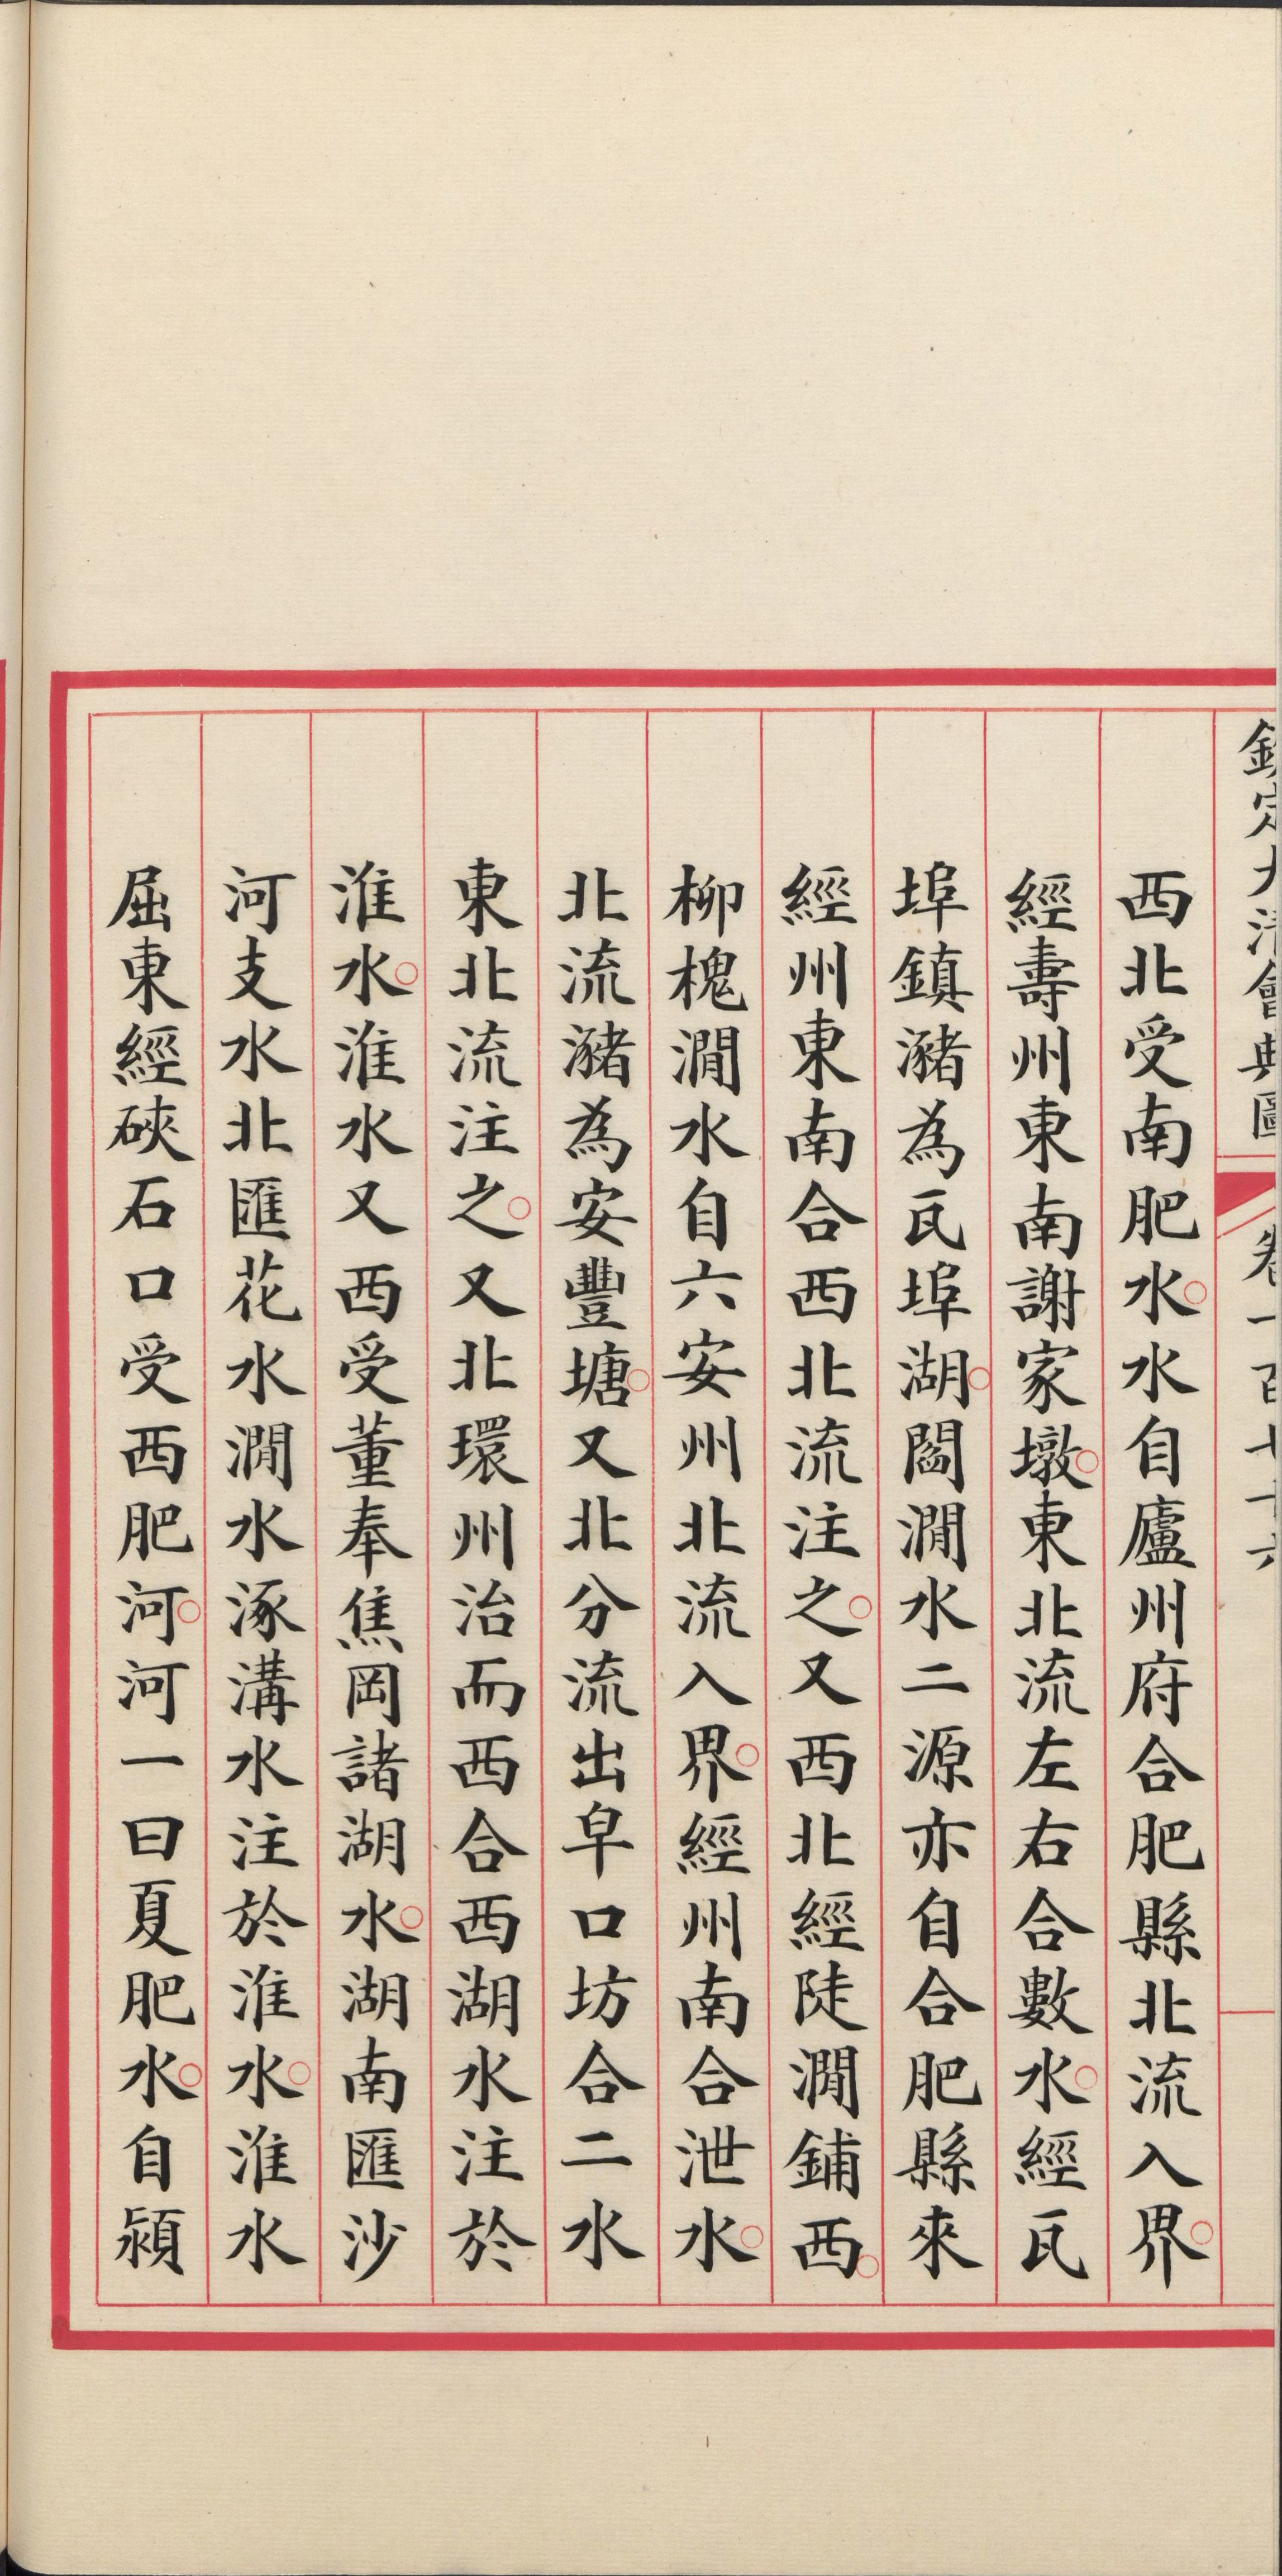 欽定大清會典圖 卷一百七十六
西北受南肥水○水自廬州府合肥縣北流入界○
經壽州東南謝家墩○東北流左右合數水○經瓦
埠鎮瀦為瓦埠湖○閻澗水二源亦自合肥縣來
經州東南合西北流注之○又西北經陡澗鋪西○
柳槐澗水自六安州北流入界○經州南合泄水○
北流瀦為安豐塘○又北分流出皁口坊合二水
東北流注之○又北環州治而西合西湖水注於
淮水○淮水又西受董奉焦岡諸湖水○湖南匯沙
河支水北匯花水澗水涿溝水注於淮水○淮水
屈東經硤石口受西肥河○河一曰夏肥水○自潁